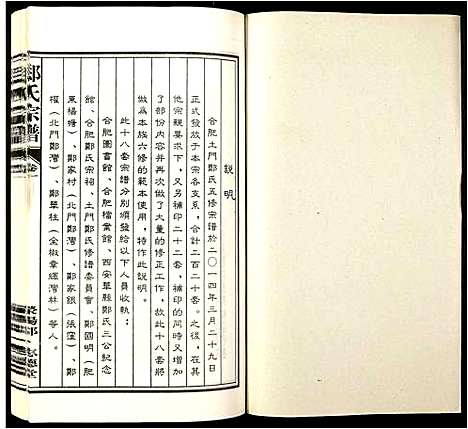 說明
合肥土門鄭氏五修宗譜於二〇一四年三月二十九日
正式發放于本宗各支系，合計二百二十套。之後，在其
他宗親要求下，又另補印二十二套，補印的同時又增加
了部份内容并再次做了大量的修正工作，故此十八套將
做為本族六修的範本使用，特作此說明。
此十八套宗譜分别頒發給以下人員收執：
合肥圖書館、合肥檔案館、西安華縣鄭氏三公紀念
館、合肥鄭氏宗祠、土門鄭氏修譜委員會、鄭國明（肥
東楊塘）、鄭家村（北門鄭灣）、鄭家銀（張窪）、鄭
權（北門鄭灣）、鄭華柱（全椒章輝灣林）等人。
鄭氏宗譜
卷
滎陽郡
志德堂